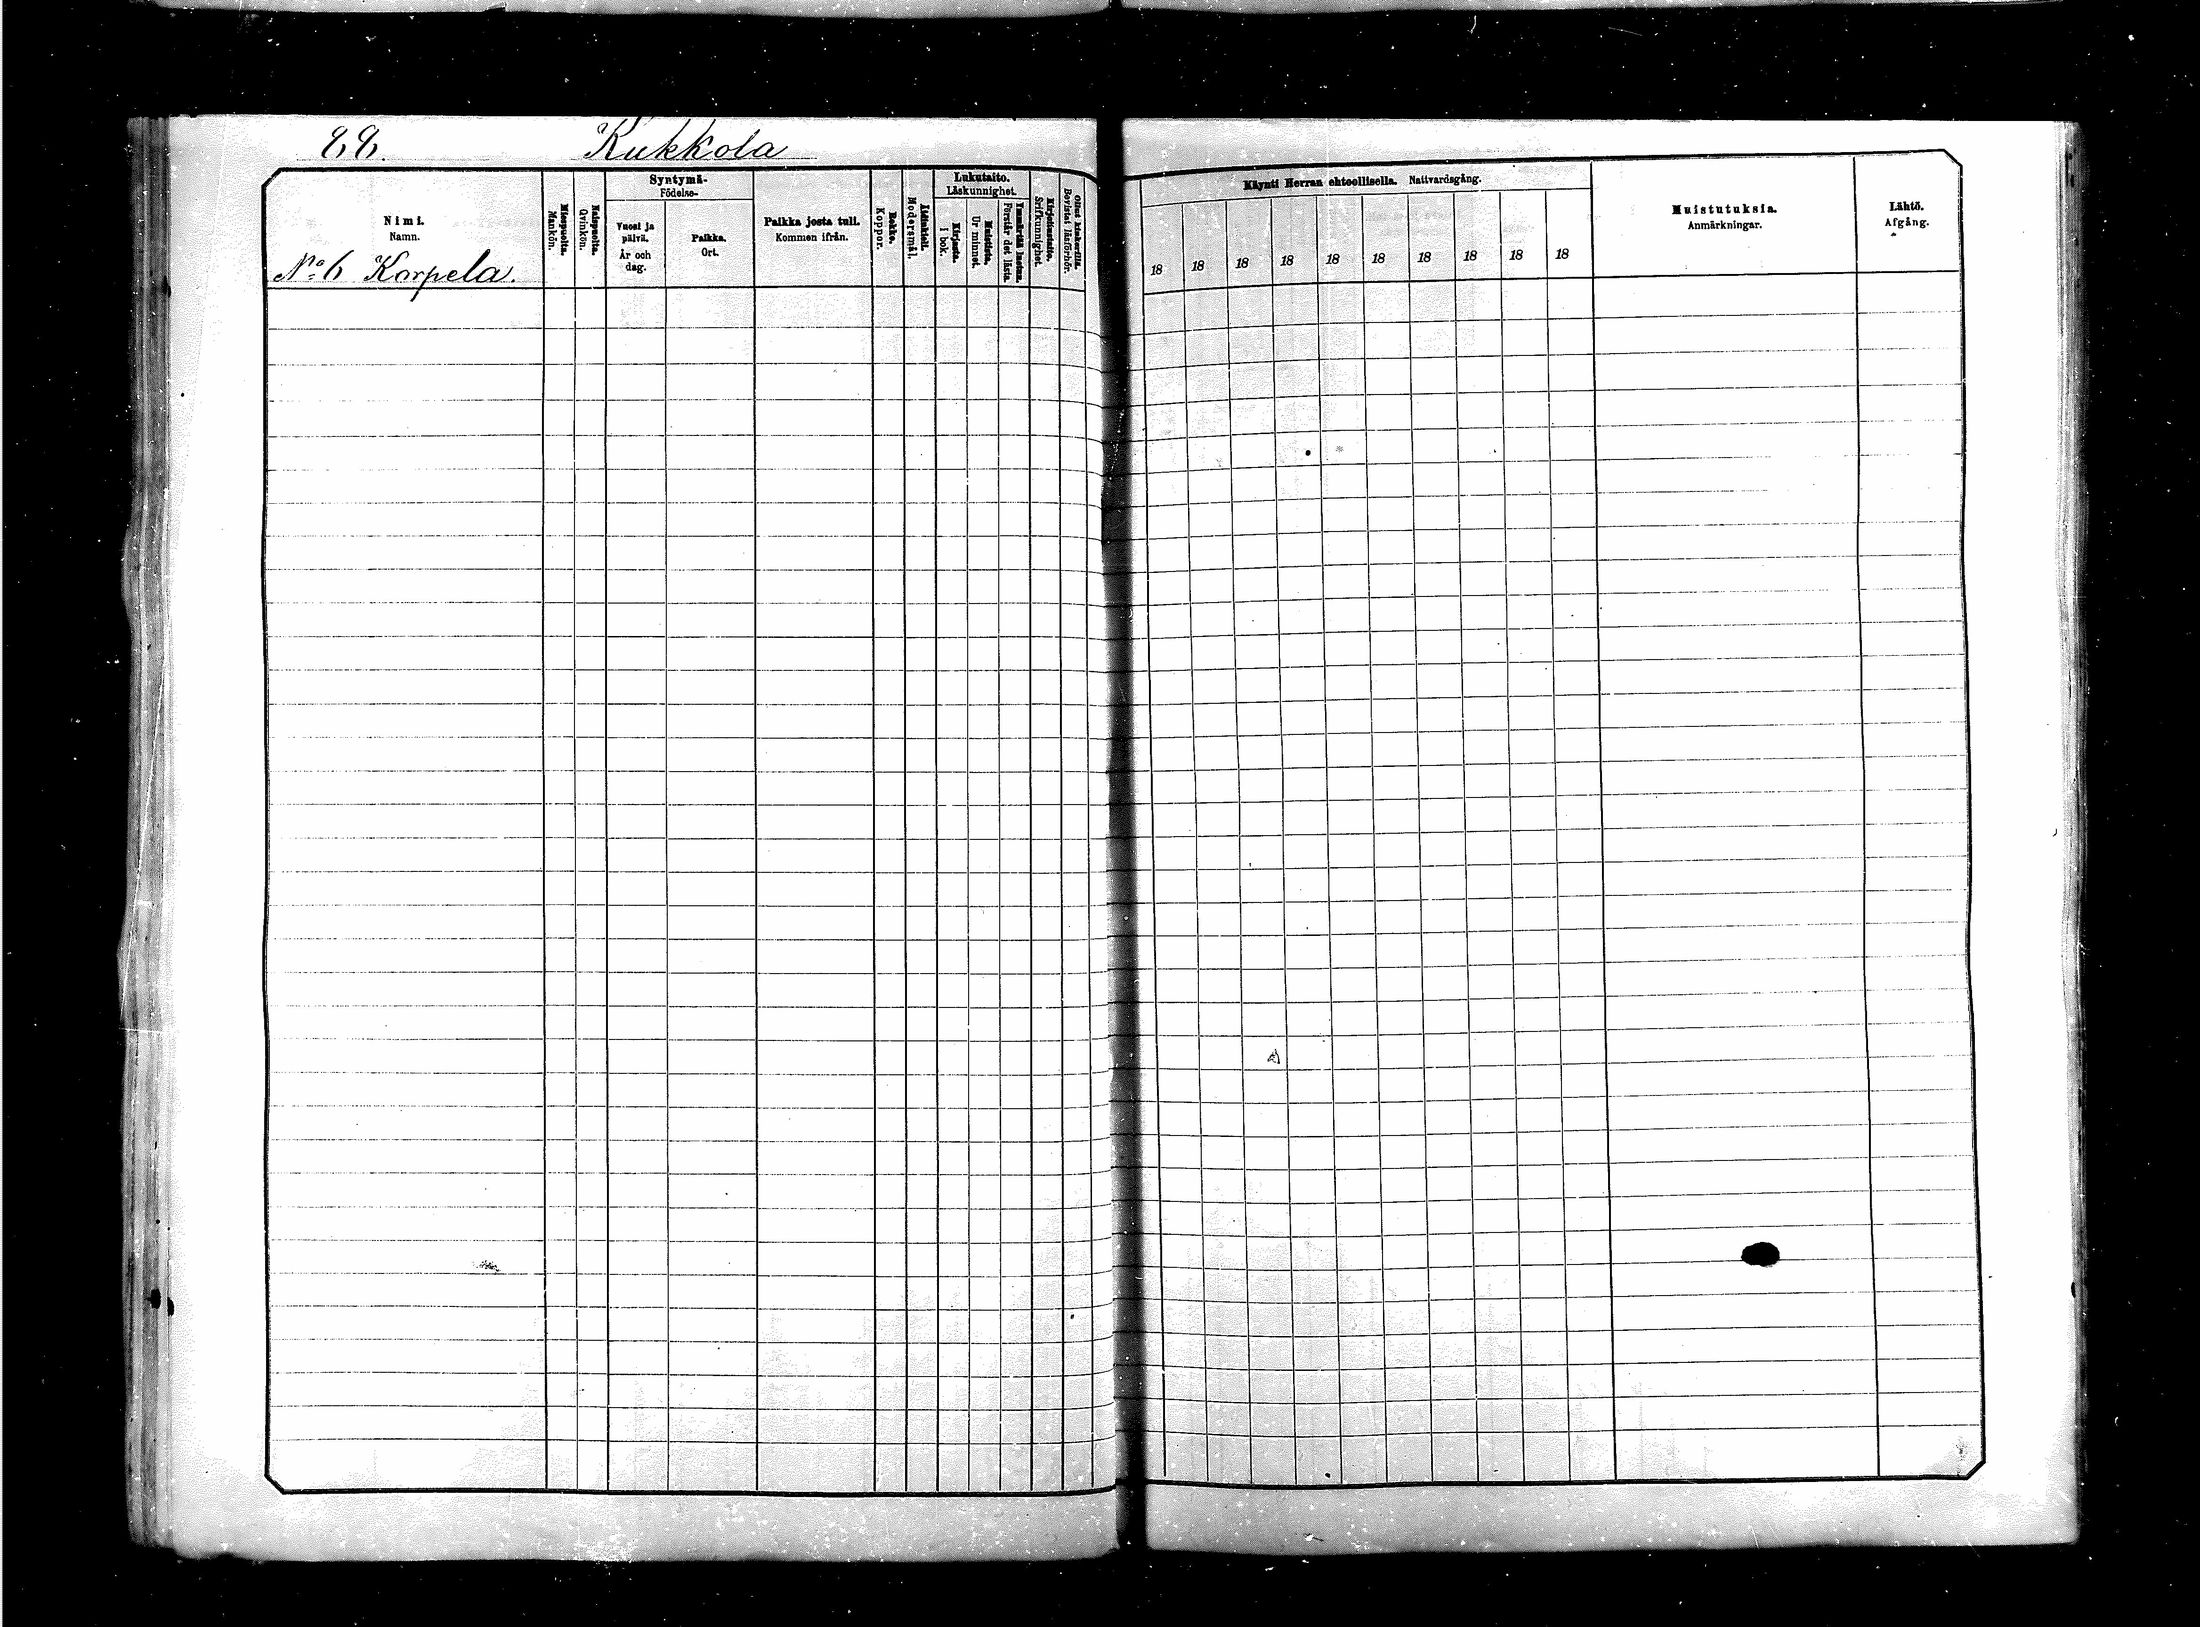 Kukkola
Nimi.
Namn.
No 6 Korpela.
Miespuolta.
Mankön.
Naispuolta.
Qvinkön.
Syntymä-
Födelse-
Vuosi ja
päivä.
År och
dag.
Paikka.
Ort.
Paikka josta tuli.
Kommen ifrån.
Rokko.
Koppor.
Äidinkieli.
Modersmål.
Lukutaito.
Läskunnighet.
Kirjasta.
I bok.
Muistista.
Ur minnet.
Ymmärtää luetun.
Förstår det lästa.
Kirjoitustaito.
Srifkunnighet.
Ollut kinkerillä.
Bevistat läsförhör.
Käynti Herran ehtoollisella. Nattvardsgång.
18 18 18 18 18 18 18 18 18 18
Muistutuksia.
Anmärkningar.
Lähtö.
Afgång.